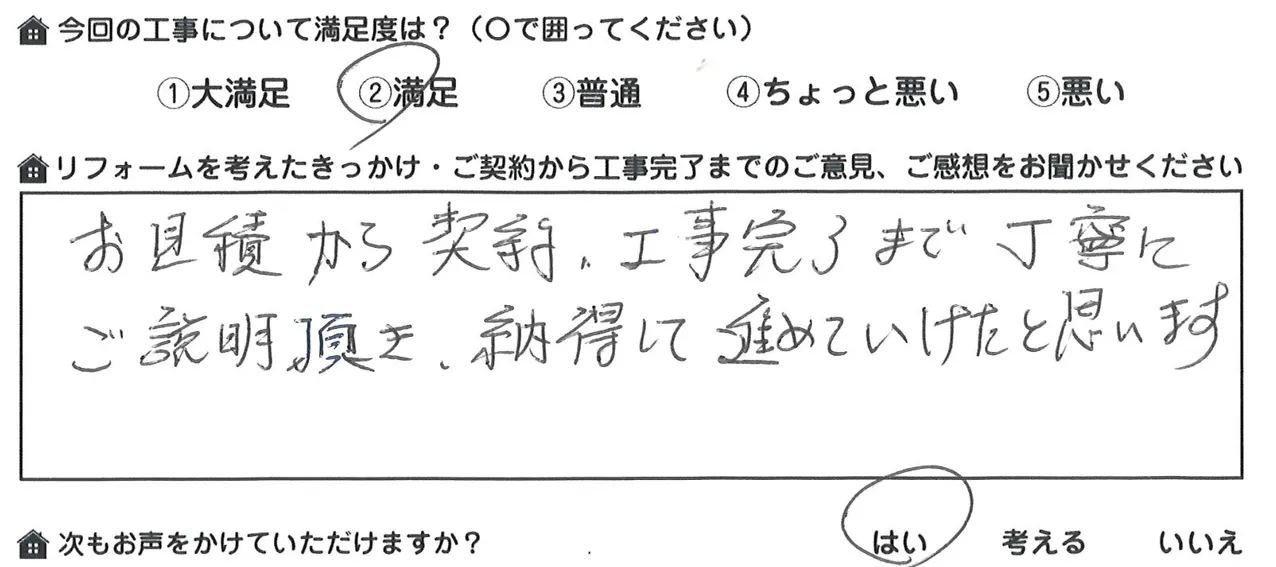 今回の工事について満足度は？（〇で囲ってください）
①大満足 ②満足 ③普通 ④ちょっと悪い ⑤悪い
リフォームを考えたきっかけ・ご契約から工事完了までのご意見、ご感想をお聞かせください
お見積から契約、工事完了まで丁寧に
ご説明頂き、納得して進めていけたと思います
次もお声をかけていただけますか？ はい 考える いいえ